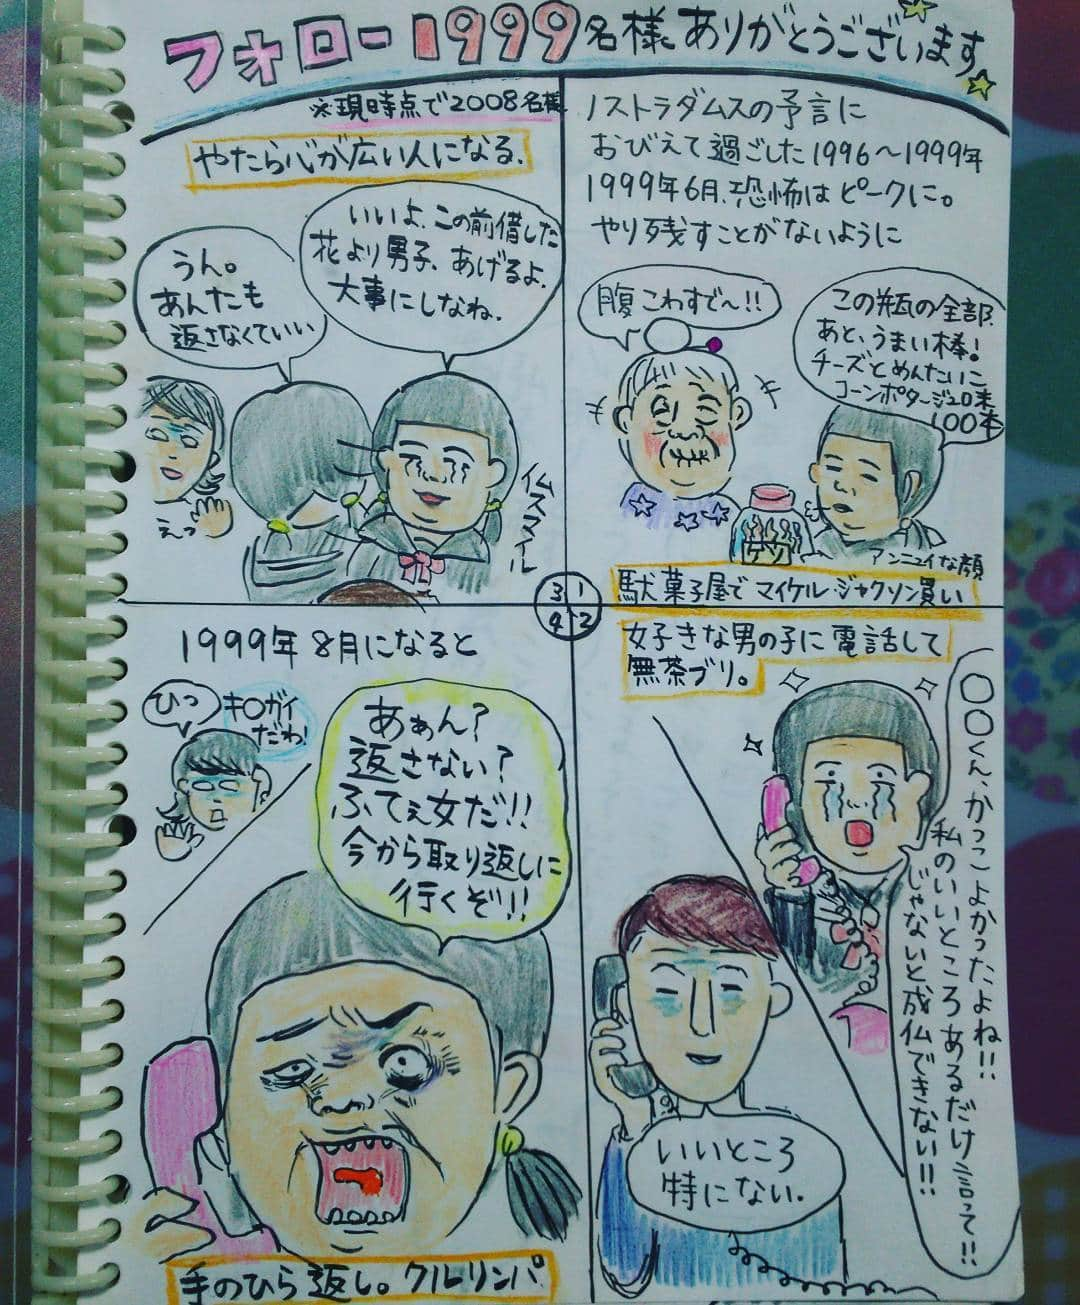 フォロー1999名様ありがとうございます。
※現時点で2008名様
ノストラダムスの予言に
おびえて過ごした1996〜1999年
1999年6月、恐怖はピークに。
やり残すことがないように
腹こわすで〜!!
この瓶の全部、
あと、うまい棒!
チーズとめんたいこ
コーンポタージュ20本
100本
ゲソ
アンニュイな顔
駄菓子屋でマイケル・ジャクソン買い
1
女子きな男の子に電話して
無茶ブリ。
○○くん、かっこよかったよね!!
私のいいところあるだけ言って!!
じゃないと成仏できない!!
いいところ
特にない。
2
やたら心が広い人になる。
いいよ、この前借した
花より男子、あげるよ。
大事にしなね。
うん。
あんたも
返さなくていい
えっ
仏スマイル
3
1999年8月になると
ひっ
キ○ガイ
だわ!
あぁん?
返さない?
ふてぇ女だ!!
今から取り返しに
行くぞ!!
手のひら返し。クルリンパ
4